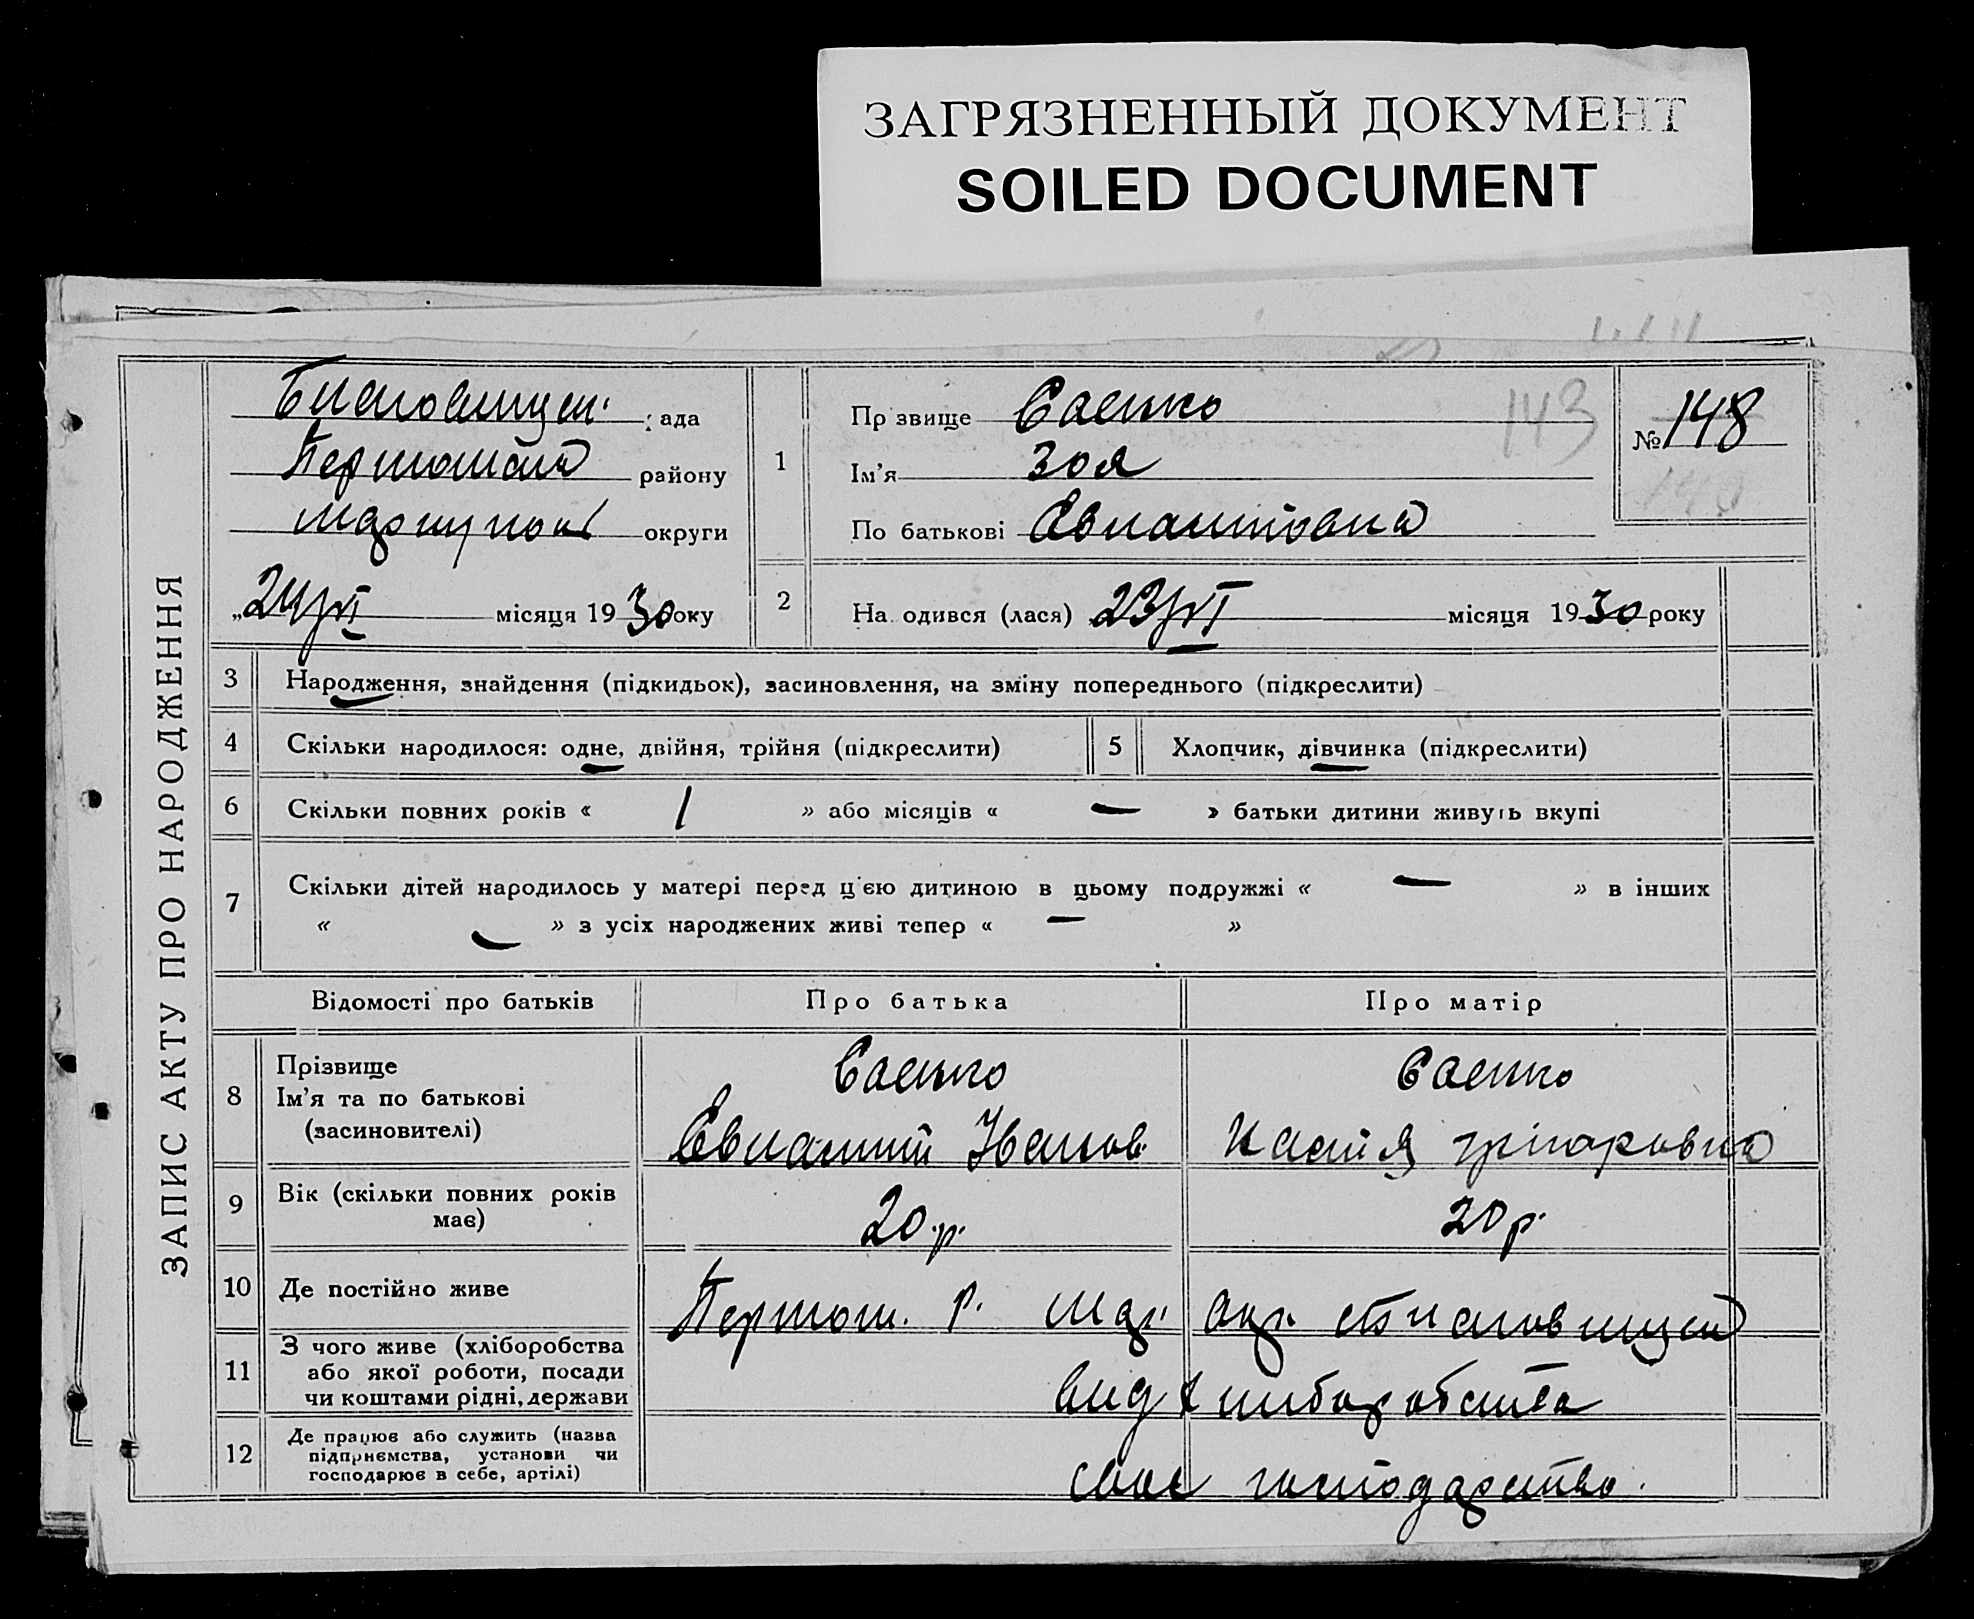 ЗАГРЯЗНЕННЫЙ ДОКУМЕНТ
SOILED DOCUMENT
ЗАПИС АКТУ ПРО НАРОДЖЕННЯ
рада
району
округи
„24/VI місяця 1930 року
1
Прізвище Саєнко
Ім'я Зоя
По батькові
143
№ 148
2
Народився (лася) 23/VI місяця 1930 року
3 Народження, знайдення (підкидьок), засиновлення, на зміну попереднього (підкреслити)
4 Скільки народилося: одне, двійня, трійня (підкреслити)
5 Хлопчик, дівчинка (підкреслити)
6 Скільки повних років « 1 » або місяців « — » батьки дитини живуть вкупі
7 Скільки дітей народилось у матері перед ц'єю дитиною в цьому подружжі « — » в інших
« — » з усіх народжених живі тепер « — »
Відомості про батьків Про батька Про матір
8 Прізвище
Ім'я та по батькові
(засиновителі)
Саєнко
Іванов.
Саєнко
Настя Грігоровна
9 Вік (скільки повних років
має)
20 р.
20 р.
10 Де постійно живе
Першом. р. Мар. Окр.
11 З чого живе (хліборобства
або якої роботи, посади
чи коштами рідні, держави
від хліборобства
12 Де працює або служить (назва
підприємства, установи чи
господарює в себе, артілі)
своє господарство.